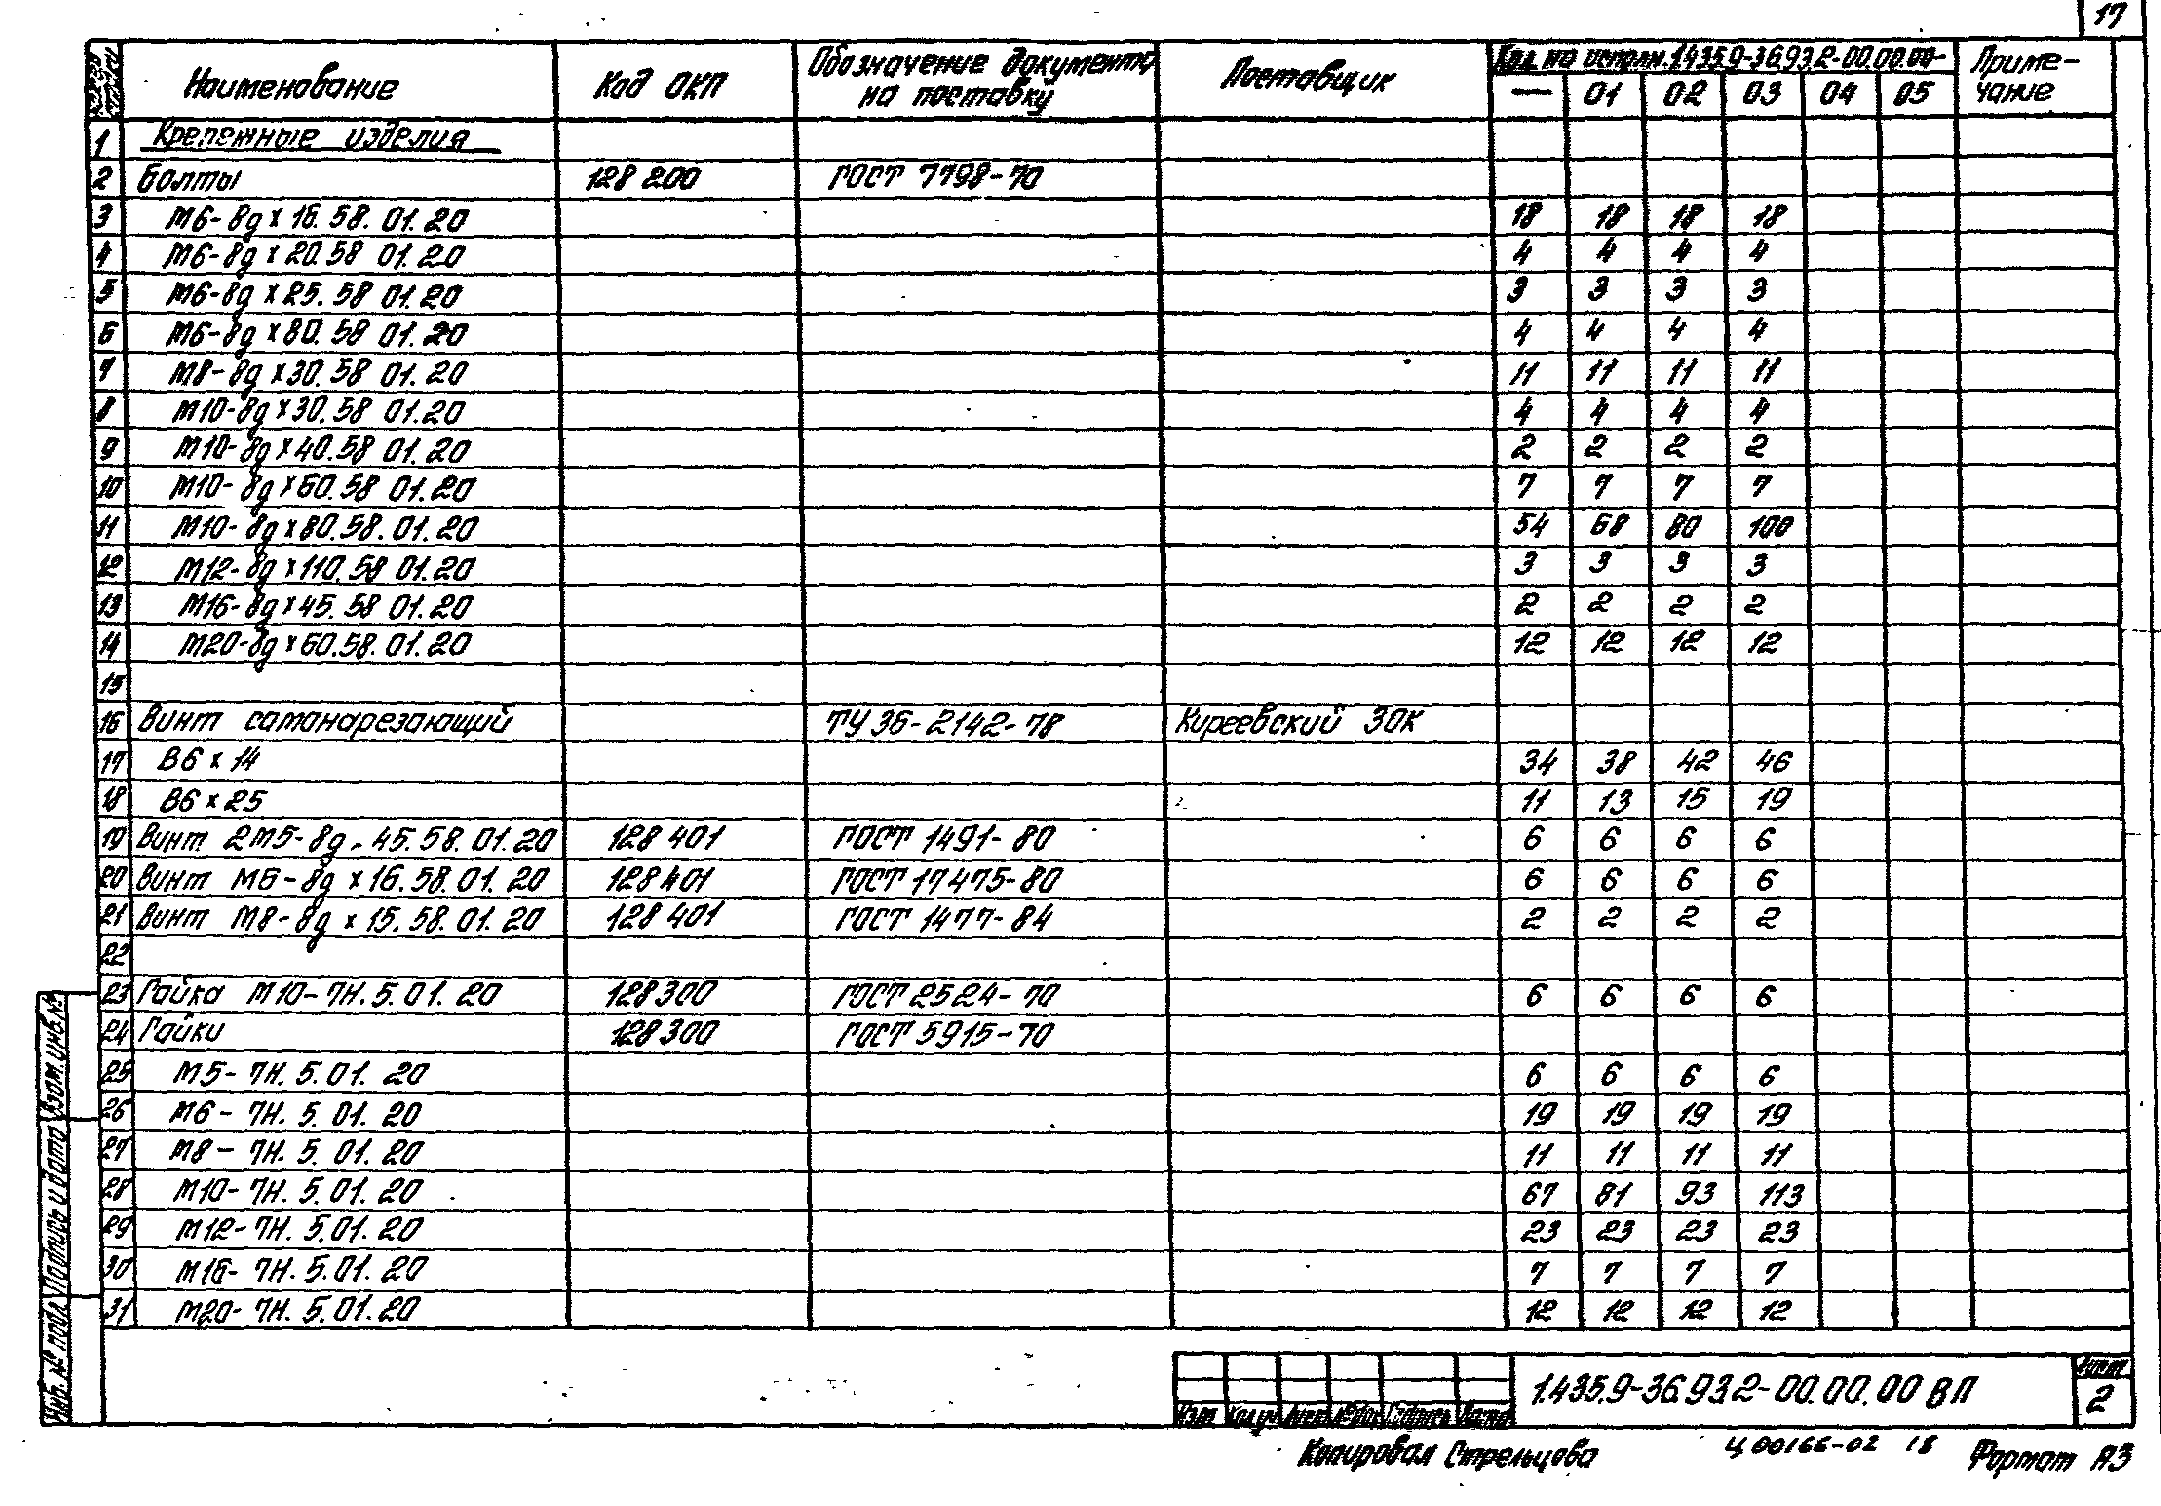 17
Наименование Код ОКП Обозначение документа на поставку Поставщик Кол. на исполн. 1.435.9-36.93.2-00.00.00- Приме-чание
— 01 02 03 04 05
1 Крепежные изделия
2 Болты 128 200 ГОСТ 7798-70
3 М6-8g x 16. 58. 01. 20 18 18 18 18
4 М6-8g x 20. 58 01. 20 4 4 4 4
5 М6-8g x 25. 58 01. 20 3 3 3 3
6 М6-8g x 80. 58 01. 20 4 4 4 4
7 М8-8g x 30. 58 01. 20 11 11 11 11
8 М10-8g x 30. 58 01. 20 4 4 4 4
9 М10-8g x 40. 58 01. 20 2 2 2 2
10 М10-8g x 60. 58 01. 20 7 7 7 7
11 М10-8g x 80. 58. 01. 20 54 68 80 100
12 М12-8g x 110. 58 01. 20 3 3 3 3
13 М16-8g x 45. 58 01. 20 2 2 2 2
14 М20-8g x 60. 58. 01. 20 12 12 12 12
15
16 Винт самонарезающий ТУ 36-2142-78 Киреевский ЗОК
17 В6 x 14 34 38 42 46
18 В6 x 25 11 13 15 19
19 Винт 2М5-8g. 45. 58. 01. 20 128 401 ГОСТ 1491-80 6 6 6 6
20 Винт М6-8g x 16. 58. 01. 20 128 401 ГОСТ 17475-80 6 6 6 6
21 Винт М8-8g x 15. 58. 01. 20 128 401 ГОСТ 1477-84 2 2 2 2
22
23 Гайка М10-7Н. 5. 01. 20 128 300 ГОСТ 2524-70 6 6 6 6
24 Гайки 128 300 ГОСТ 5915-70
25 М5-7Н. 5. 01. 20 6 6 6 6
26 М6-7Н. 5. 01. 20 19 19 19 19
27 М8-7Н. 5. 01. 20 11 11 11 11
28 М10-7Н. 5. 01. 20 67 81 93 113
29 М12-7Н. 5. 01. 20 23 23 23 23
30 М16-7Н. 5. 01. 20 7 7 7 7
31 М20-7Н. 5. 01. 20 12 12 12 12
Инв. № подл. Подпись и дата Взам. инв. №
Изм Кол.уч Лист №док Подпись Дата
1.435.9-36.93.2-00.00.00 ВП
Лист
2
Копировал Стрельцова Ц00166-02 18 Формат А3